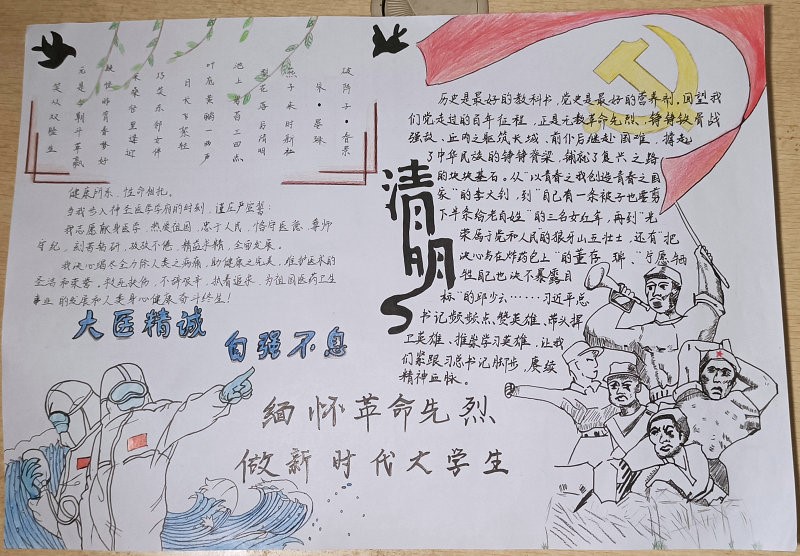 破阵子·春景
宋·晏殊
燕子来时新社
梨花落后清明
池上碧苔三四点
叶底黄鹂一两声
日长飞絮轻
巧笑东邻女伴
采桑径里逢迎
疑怪昨宵春梦好
元是今朝斗草赢
笑从双脸生
健康所系，性命相托。
当我步入神圣医学学府的时刻，谨庄严宣誓：
我志愿献身医学，热爱祖国，忠于人民，恪守医德，尊师
守纪，刻苦钻研，孜孜不倦，精益求精，全面发展。
我决心竭尽全力除人类之病痛，助健康之完美，维护医术的
圣洁和荣誉，救死扶伤，不辞艰辛，执着追求，为祖国医药卫生
事业的发展和人类身心健康奋斗终生！
大医精诚
自强不息
清明
历史是最好的教科书，党史是最好的营养剂，回望我
们党走过的百年征程，正是无数革命先烈，铮铮铁骨战
强敌、血肉之躯筑长城，前仆后继赴国难，撑起
了中华民族的铮铮脊梁，铺就了复兴之路
的块块基石。从“以青春之我创造青春之国
家”的李大钊，到“自己有一条被子也要剪
下半条给老百姓”的三名女红军，再到“光
荣属于党和人民的狼牙山五壮士，还有“把
决心写在炸药包上”的董存瑞、“宁愿牺
牲自己也决不暴露目
标”的邱少云……习近平总
书记频频点赞英雄、带头捍
卫英雄、推崇学习英雄，让我
们紧跟习总书记脚步，赓续
精神血脉。
缅怀革命先烈
做新时代大学生